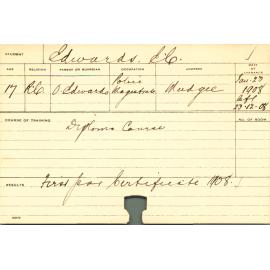 STUDENT Edwards, C.
AGE RELATION PARENT OR GUARDIAN OCCUPATION ADDRESS DATE OF ENTRANCE
17 R.C. O Edwards Police Magistrate Mudgee Jan-23 1908
23-12-08
COURSE OF TRAINING NO. OF ROOM
Diploma Course
RESULTS First year Certificate 1908.
NOTE